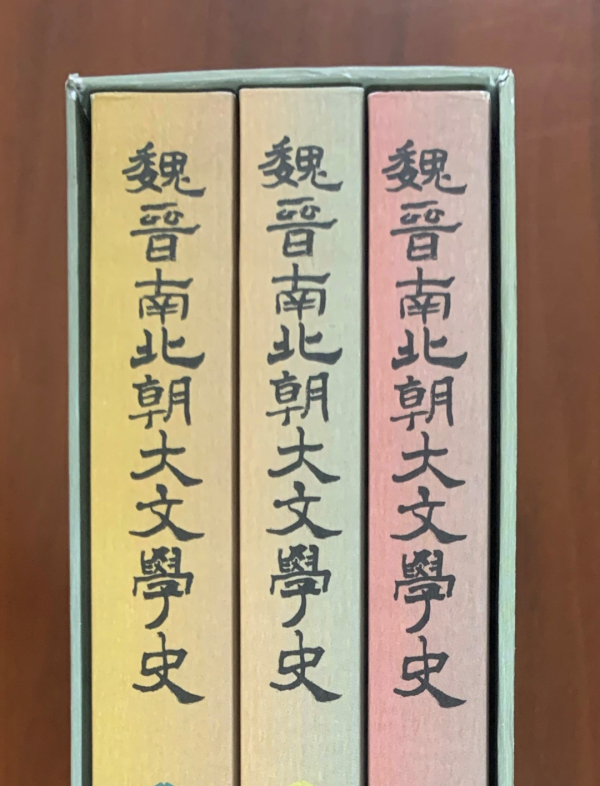 魏晉南北朝大文學史
魏晉南北朝大文學史
魏晉南北朝大文學史